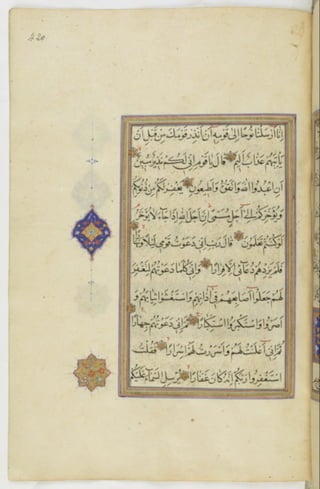 420
إنا أرسلنا نوحا إلى قومه أن أنذر قومك من قبل أن
يأتيهم عذاب أليم قال يا قوم إني لكم نذير مبين
أن اعبدوا الله واتقوه وأطيعون يغفر لكم من ذنوبكم
ويؤخركم إلى أجل مسمى إن أجل الله إذا جاء لا يؤخر
لو كنتم تعلمون قال رب إني دعوت قومي ليلا ونهارا
فلم يزدهم دعائي إلا فرارا وإني كلما دعوتهم لتغفر
لهم جعلوا أصابعهم في آذانهم واستغشوا ثيابهم و
أصروا واستكبروا استكبارا ثم إني دعوتهم جهارا
ثم إني أعلنت لهم وأسررت لهم إسرارا فقلت
استغفروا ربكم إنه كان غفارا يرسل السماء عليكم